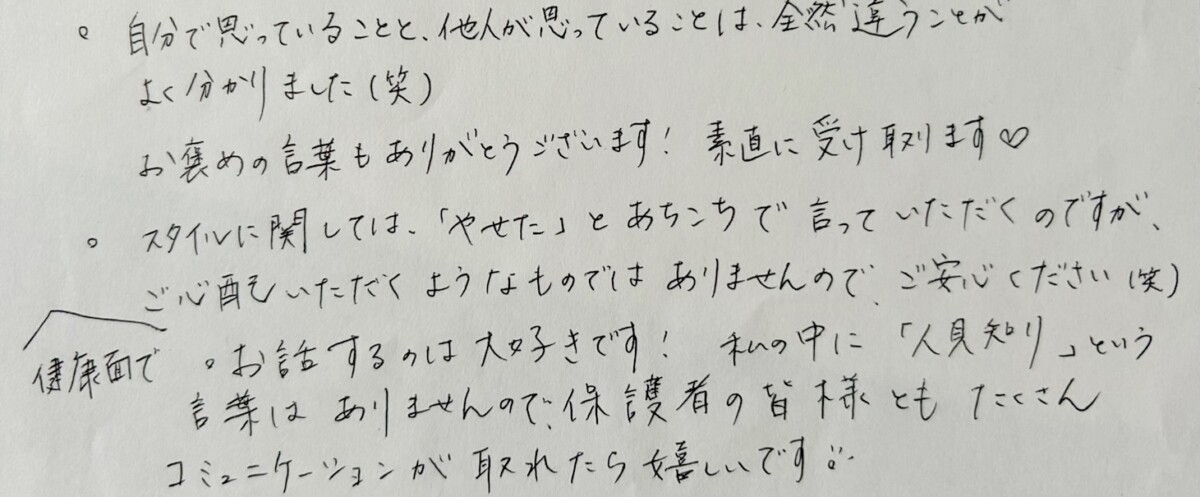 。自分で思っていることと、他人が思っていることは、全然違うことが
よく分かりました(笑)
お褒めの言葉もありがとうございます! 素直に受け取ります♡
。スタイルに関しては、「やせた」とあちこちで言っていただくのですが、
ご心配いただくようなものではありませんので、ご安心ください(笑)
健康面で
。お話するのは大好きです! 私の中に「人見知り」という
言葉はありませんので、保護者の皆様ともたくさん
コミュニケーションが取れたら嬉しいです